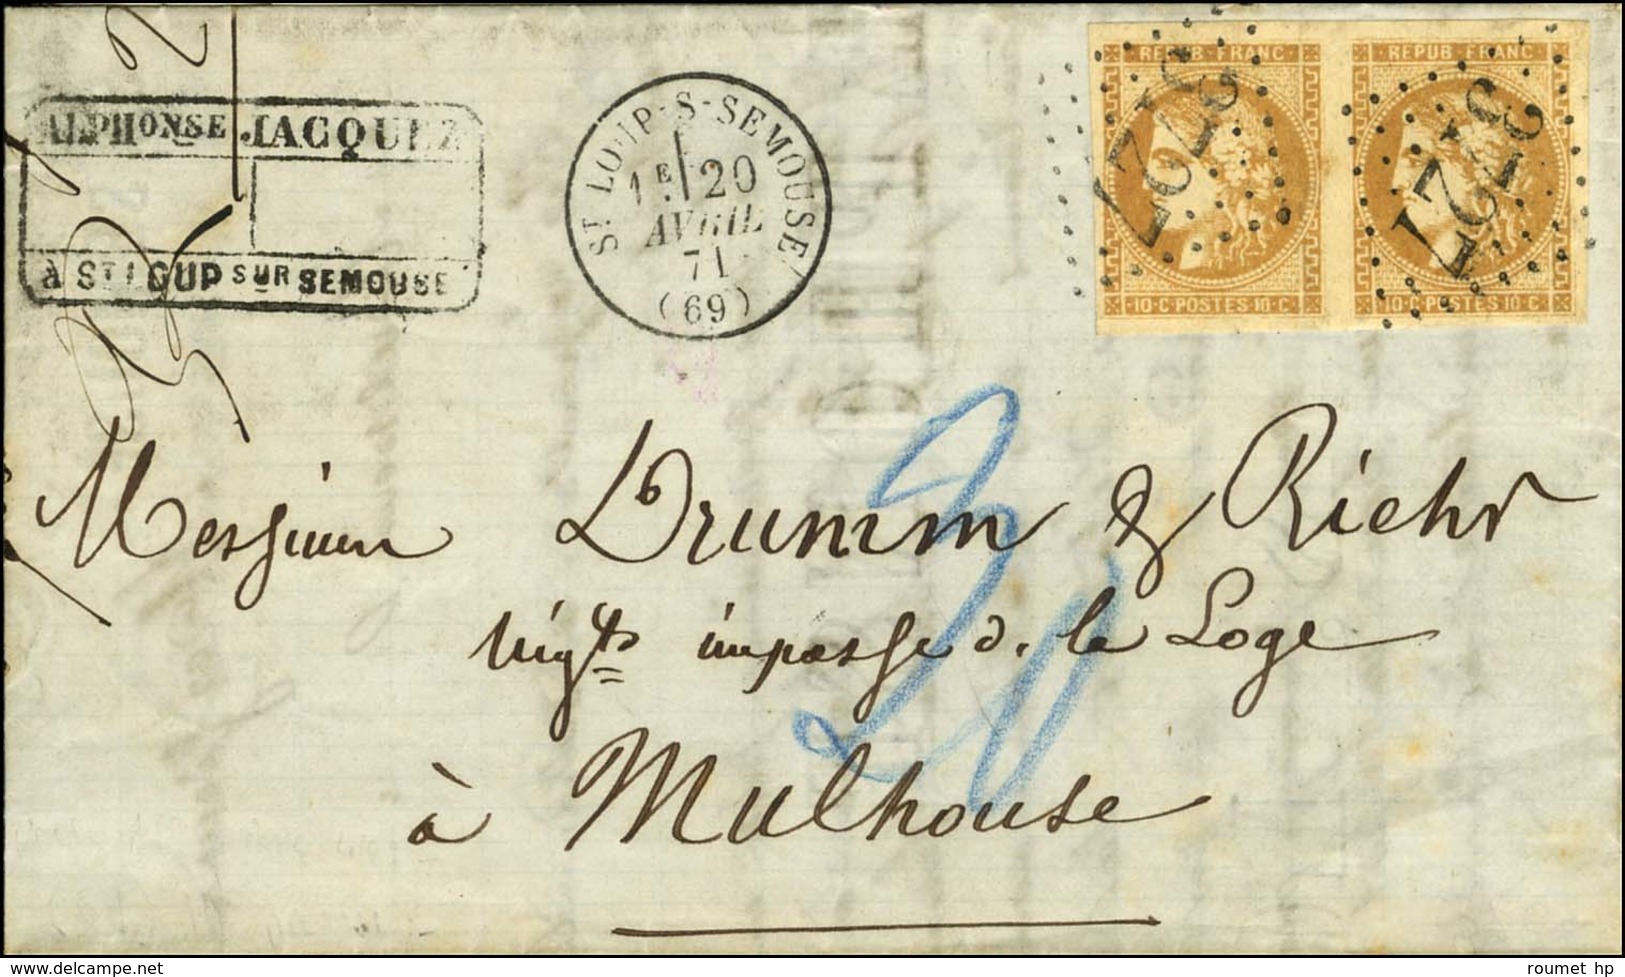 ALPHONSE JACQUEZ
à ST LOUP SUR SEMOUSE
ST LOUP-S-SEMOUSE
1E 20
AVRIL
71
(69)
REPUB·FRANC
10·C POSTES·10·C
REPUB·FRANC
10·C POSTES·10·C
3727
3727
Messieurs Drumm & Riehr
Nigts impasse d. la Loge
à Mulhouse
20
roumet hp